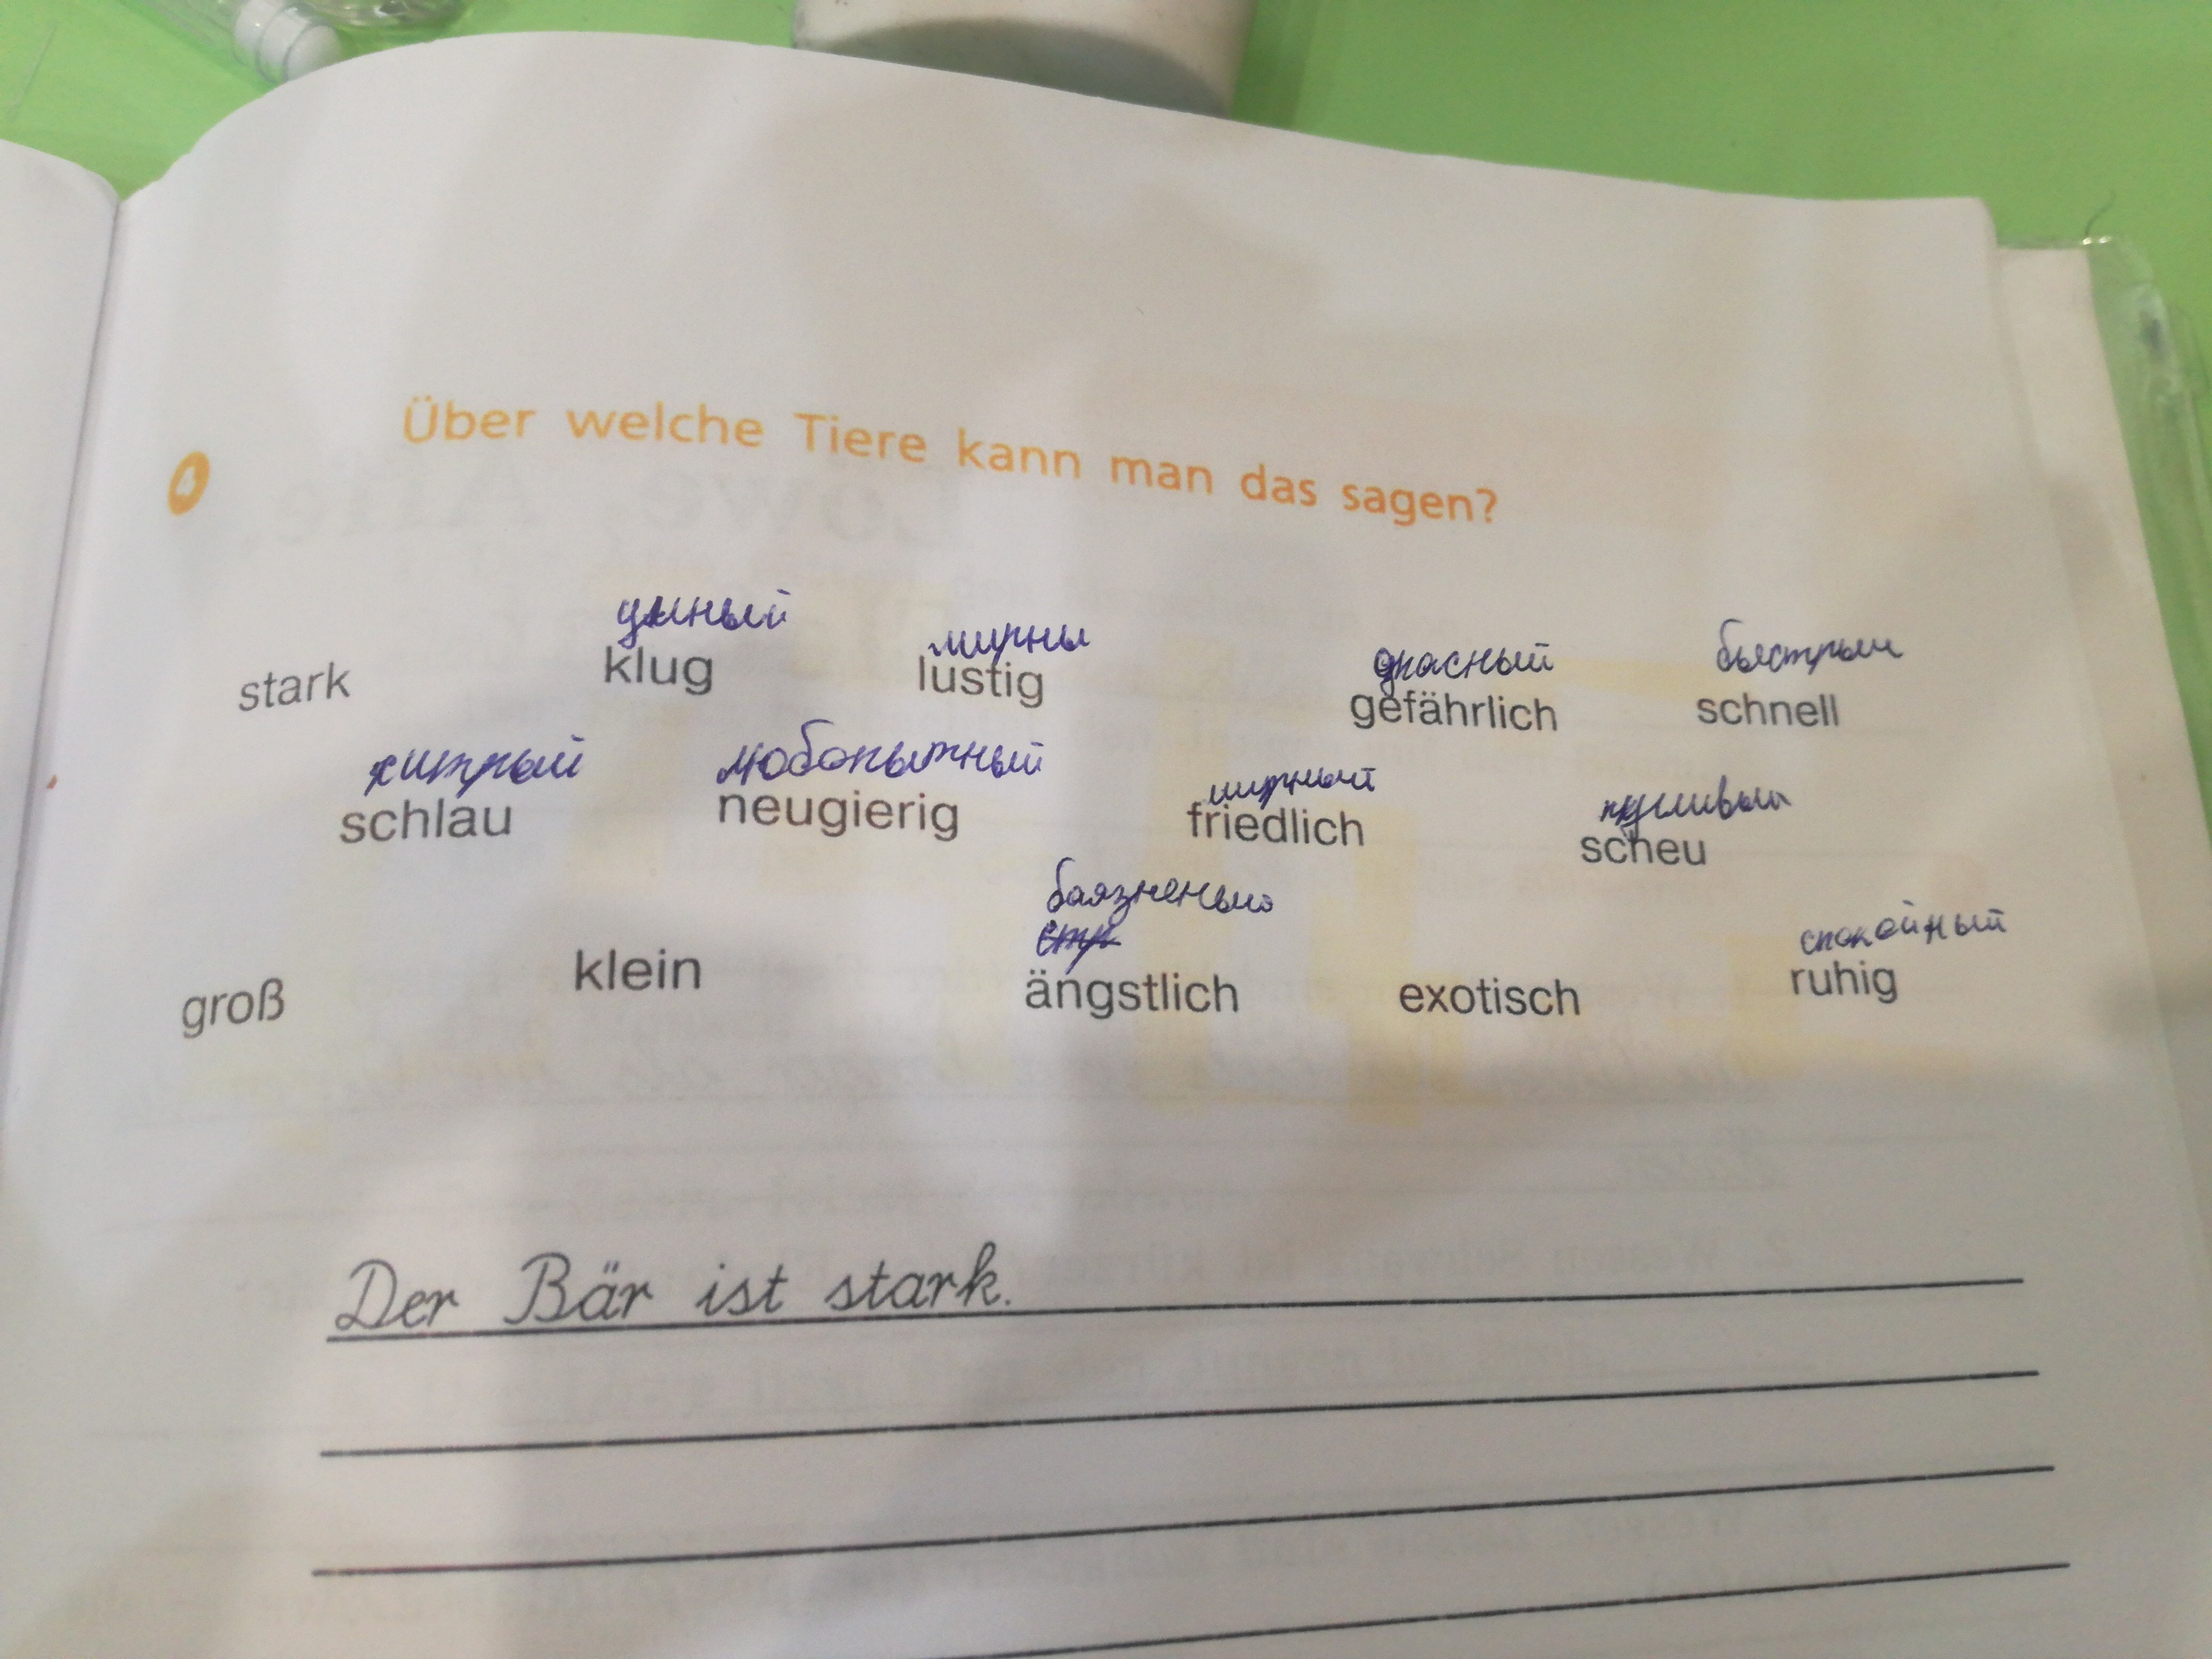 4 Über welche Tiere kann man das sagen?
умный мирны опасный быстрый
stark klug lustig gefährlich schnell
хитрый любопытный мирный пугливый
schlau neugierig friedlich scheu
баязненый
стр
спокойный
groß klein ängstlich exotisch ruhig
Der Bär ist stark.